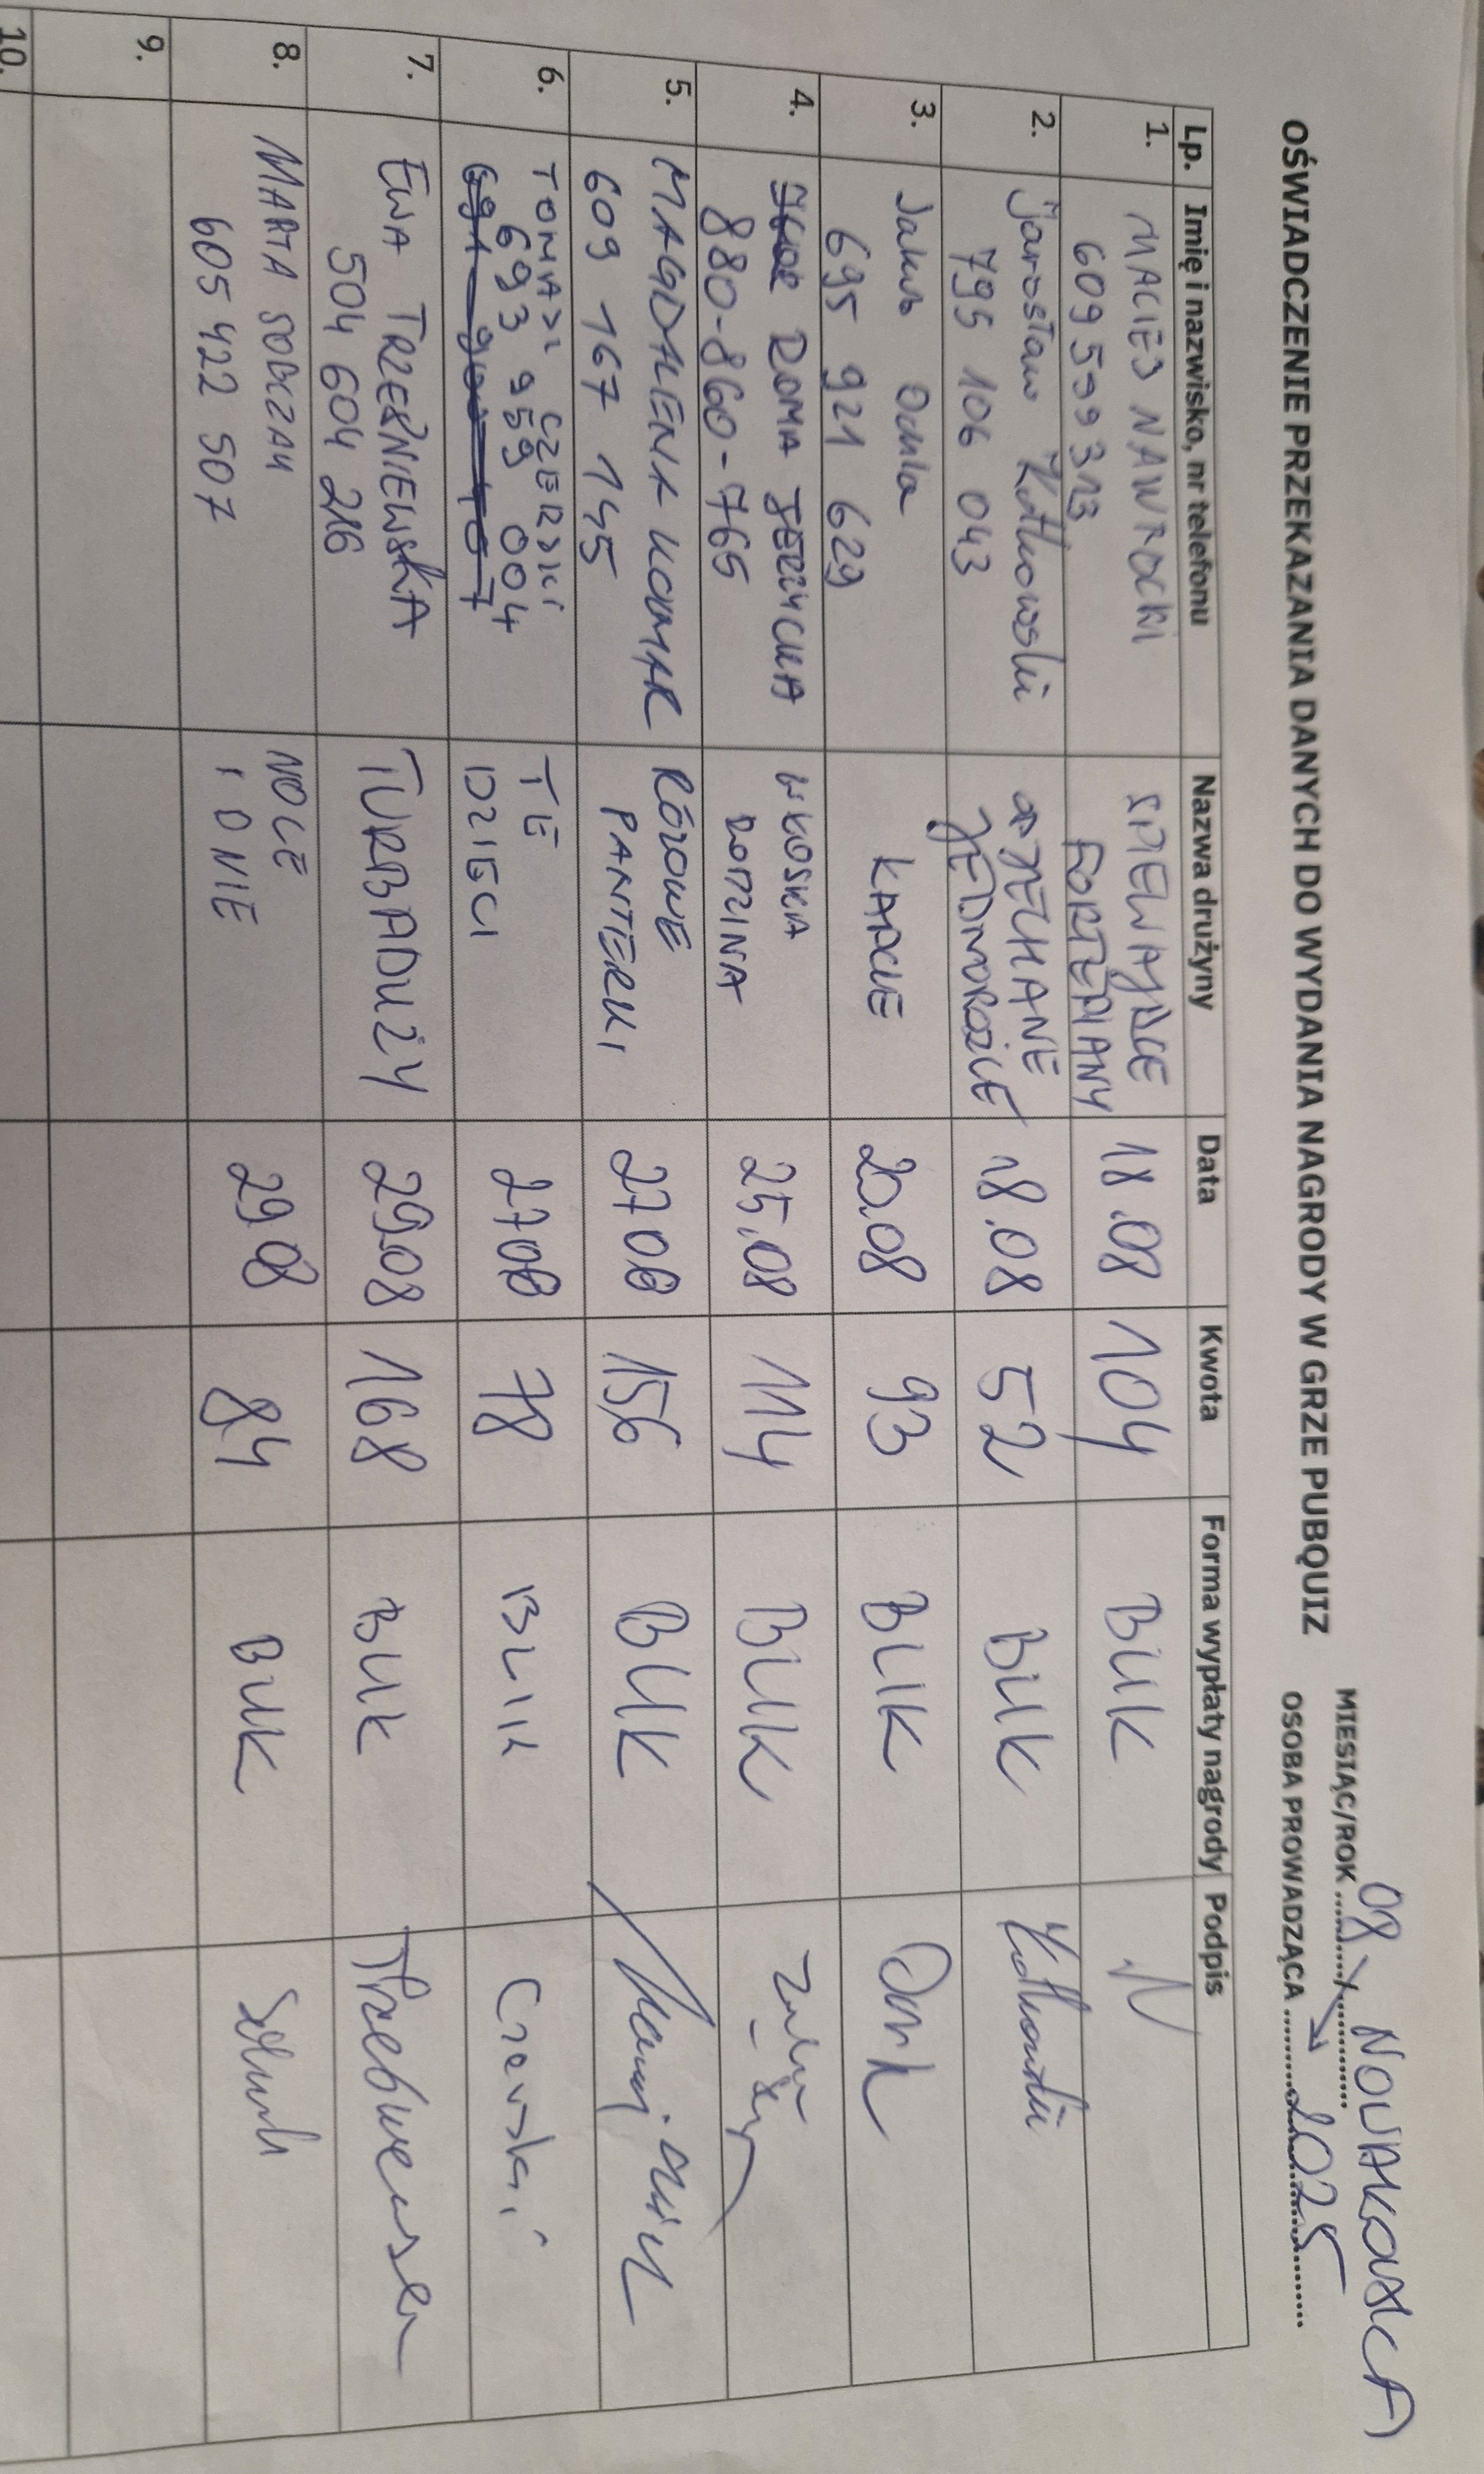 OŚWIADCZENIE PRZEKAZANIA DANYCH DO WYDANIA NAGRODY W GRZE PUBQUIZ
MIESIĄC/ROK 08 / 2025
OSOBA PROWADZĄCA NOWAKOWSKA
Lp. Imię i nazwisko, nr telefonu Nazwa drużyny Data Kwota Forma wypłaty nagrody Podpis
1. MACIEJ NAWROCKI ŚPIEWAJĄCE 18.08 104 BLIK
609 599 313 FORTEPIANY
2. Jarosław Kotkowski JEDNOROŻCE 18.08 52 BLIK
795 106 043
3. Jakub KAPCIE 20.08 93 BLIK
695 921 629
4. ROMA WŁOSKA 25.08 114 BLIK
880-860-765 RODZINA
5. MAGDALENA KORMAK RÓŻOWE 27 08 156 BLIK
609 167 145 PANTERKI
6. TOMASZ CZERSKI TE 27 08 78 BLIK Czerski
693 959 004 DZIECI
7. EWA TRZEŚNIEWSKA TURBADUŻY 29.08 168 BLIK
504 604 216
8. MARTA SOBCZAK NOCE 29.08 84 BLIK
605 422 507 I DNIE
9.
10.